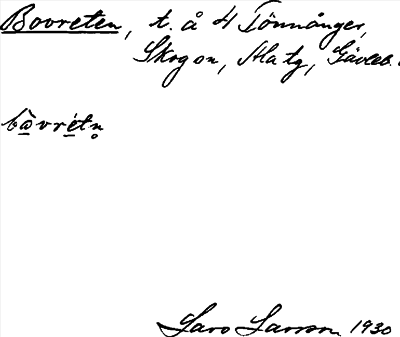 Bovreten, t. å 4 Tönnånger,
Skogon, Matg, Gävleb.
bòvrétn̥
Lars Larsson 1930